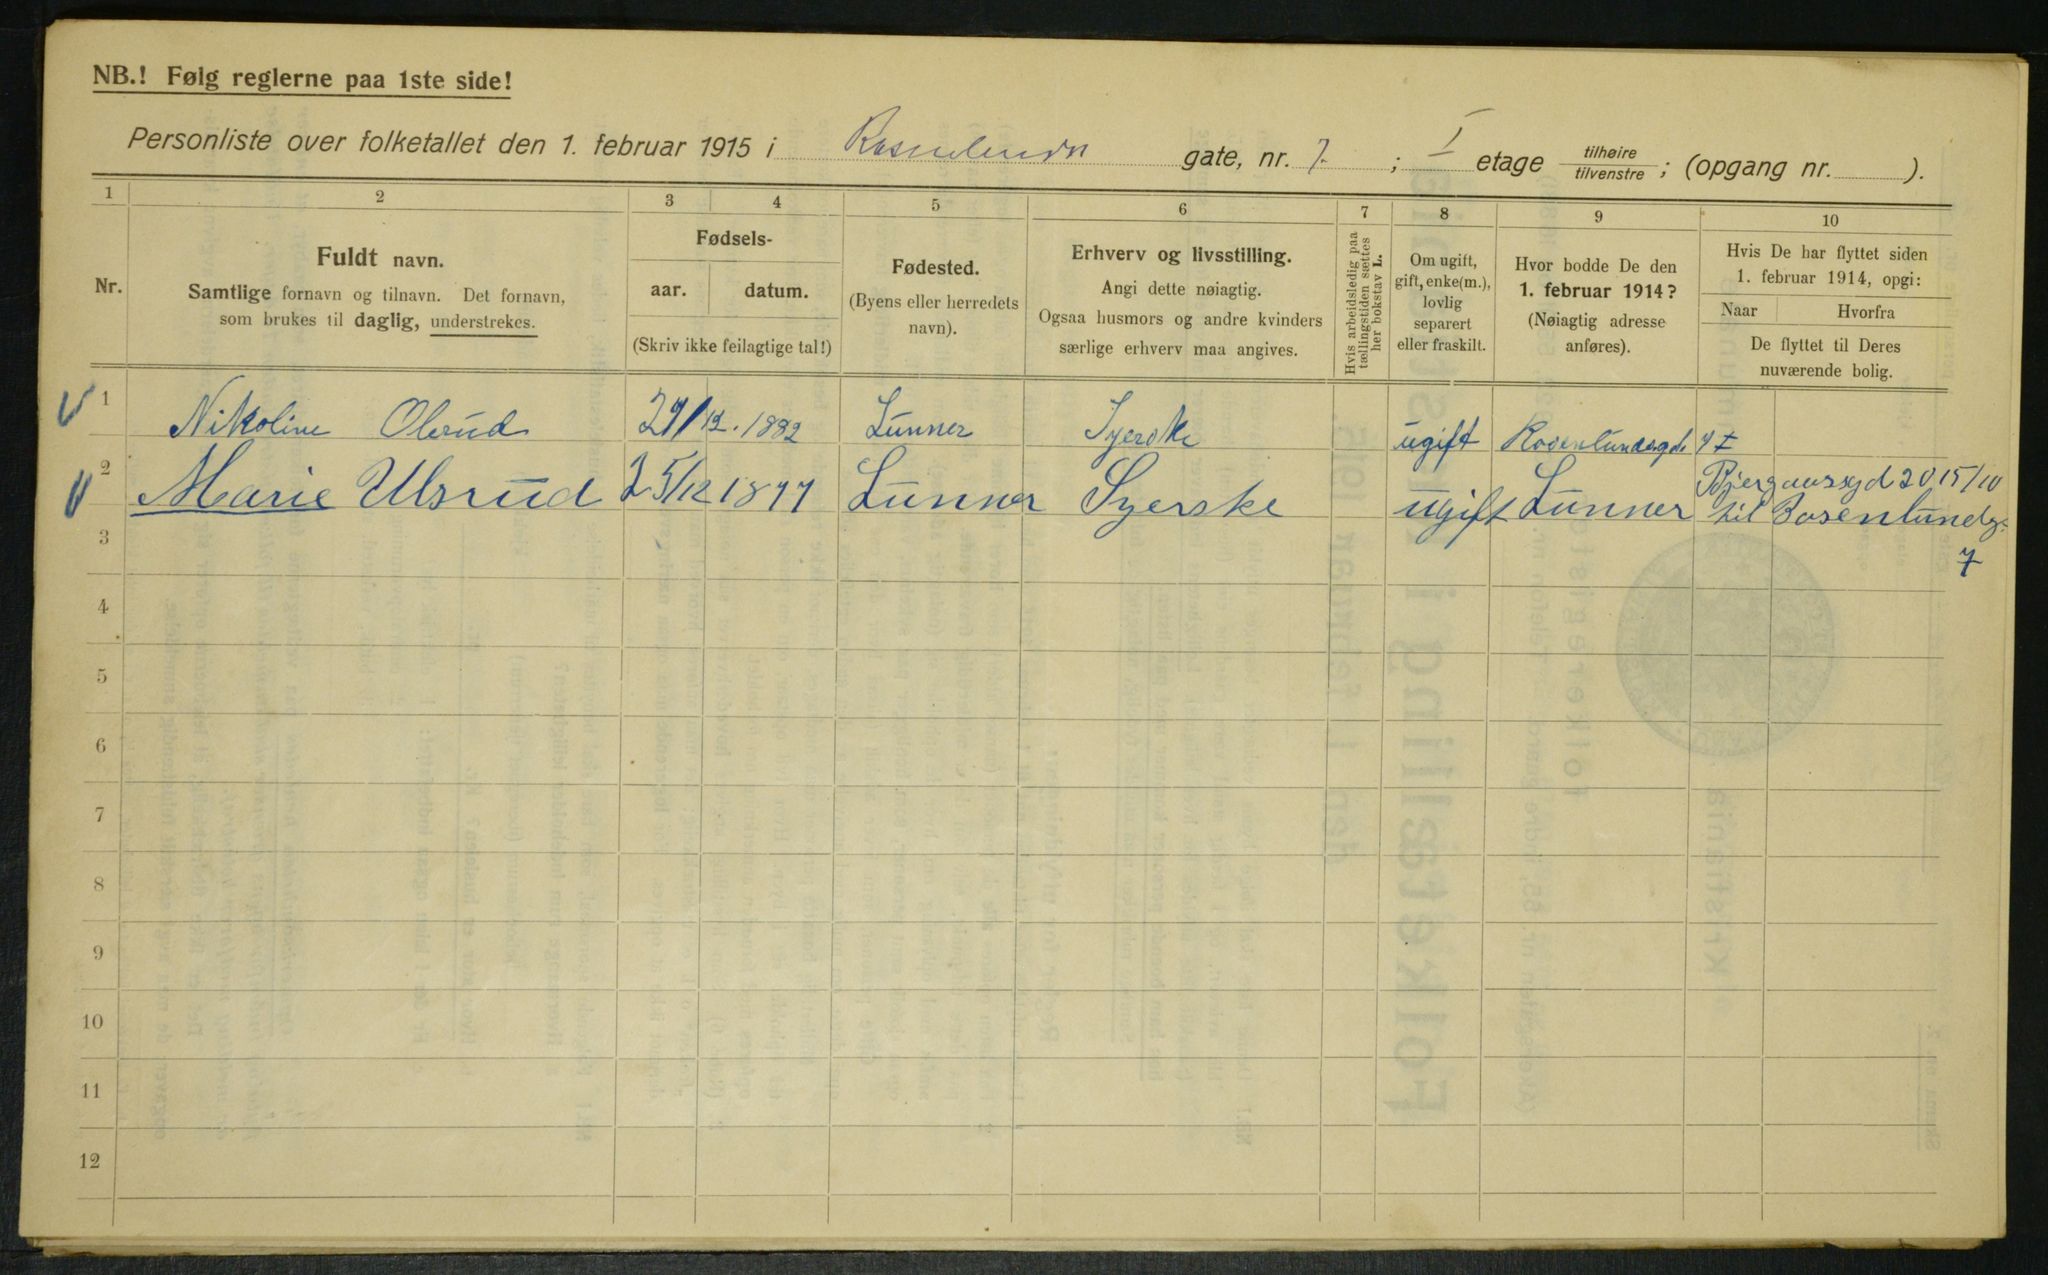 NB.! Følg reglerne paa 1ste side!
Personliste over folketallet den 1. februar 1915 i Rosenlunds gate, nr. 7. ; I etage tilhøire / tilvenstre ; (opgang nr. ).
1 2 3 4 5 6 7 8 9 10
Nr.
Fuldt navn.
Samtlige fornavn og tilnavn. Det fornavn,
som brukes til daglig, understrekes.
Fødsels-
aar. datum.
(Skriv ikke feilagtige tal!)
Fødested.
(Byens eller herredets
navn).
Erhverv og livsstilling.
Angi dette nøiagtig.
Ogsaa husmors og andre kvinders
særlige erhverv maa angives.
Hvis arbeidsledig paa
tællingstiden sættes
her bokstav L.
Om ugift,
gift, enke(m.),
lovlig
separert
eller fraskilt.
Hvor bodde De den
1. februar 1914?
(Nøiagtig adresse
anføres).
Hvis De har flyttet siden
1. februar 1914, opgi:
Naar Hvorfra
De flyttet til Deres
nuværende bolig.
1 Nikoline Olsrud 29/12. 1882 Lunner Syerske ugift Rosenlundsgd. 7 I
2 Marie Ulsrud 25/12 1877 Lunner Syerske ugift Lunner Bjergaasgd 20 15/10
til Rosenlundg.
7
3
4
5
6
7
8
9
10
11
12